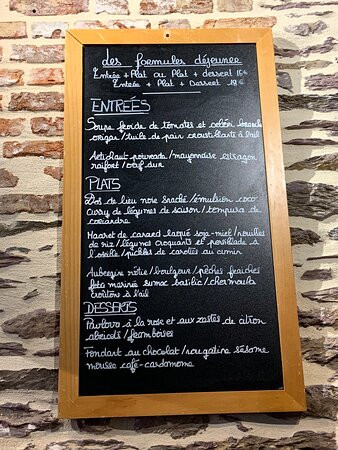 des formules déjeuner
Entrée + Plat ou Plat + dessert 15€
Entrée + Plat + Dessert 19€
ENTREÉS
Soupe froide de tomates et
origan/tuile de pain croustillante à l'ail
Artichaut poivrade/mayonnaise estragon
raifort/œuf dur
PLATS
Dos de lieu noir snacké/émulsion coco
curry de légumes de saison/tempura de
coriandre
Magret de canard laqué soja-miel/nouilles
de riz/légumes croquants et persillade à
l'oseille/pickles de carottes au cumin
Aubergine rôtie/boulgour/pêches fraîches
feta marinée sumac basilic/chermoula
croûtons à l'ail
DESSERTS
Pavlova à la rose et aux zestes de citron
abricots/framboises
Fondant au chocolat/nougatine sésame
mousse café-cardamome